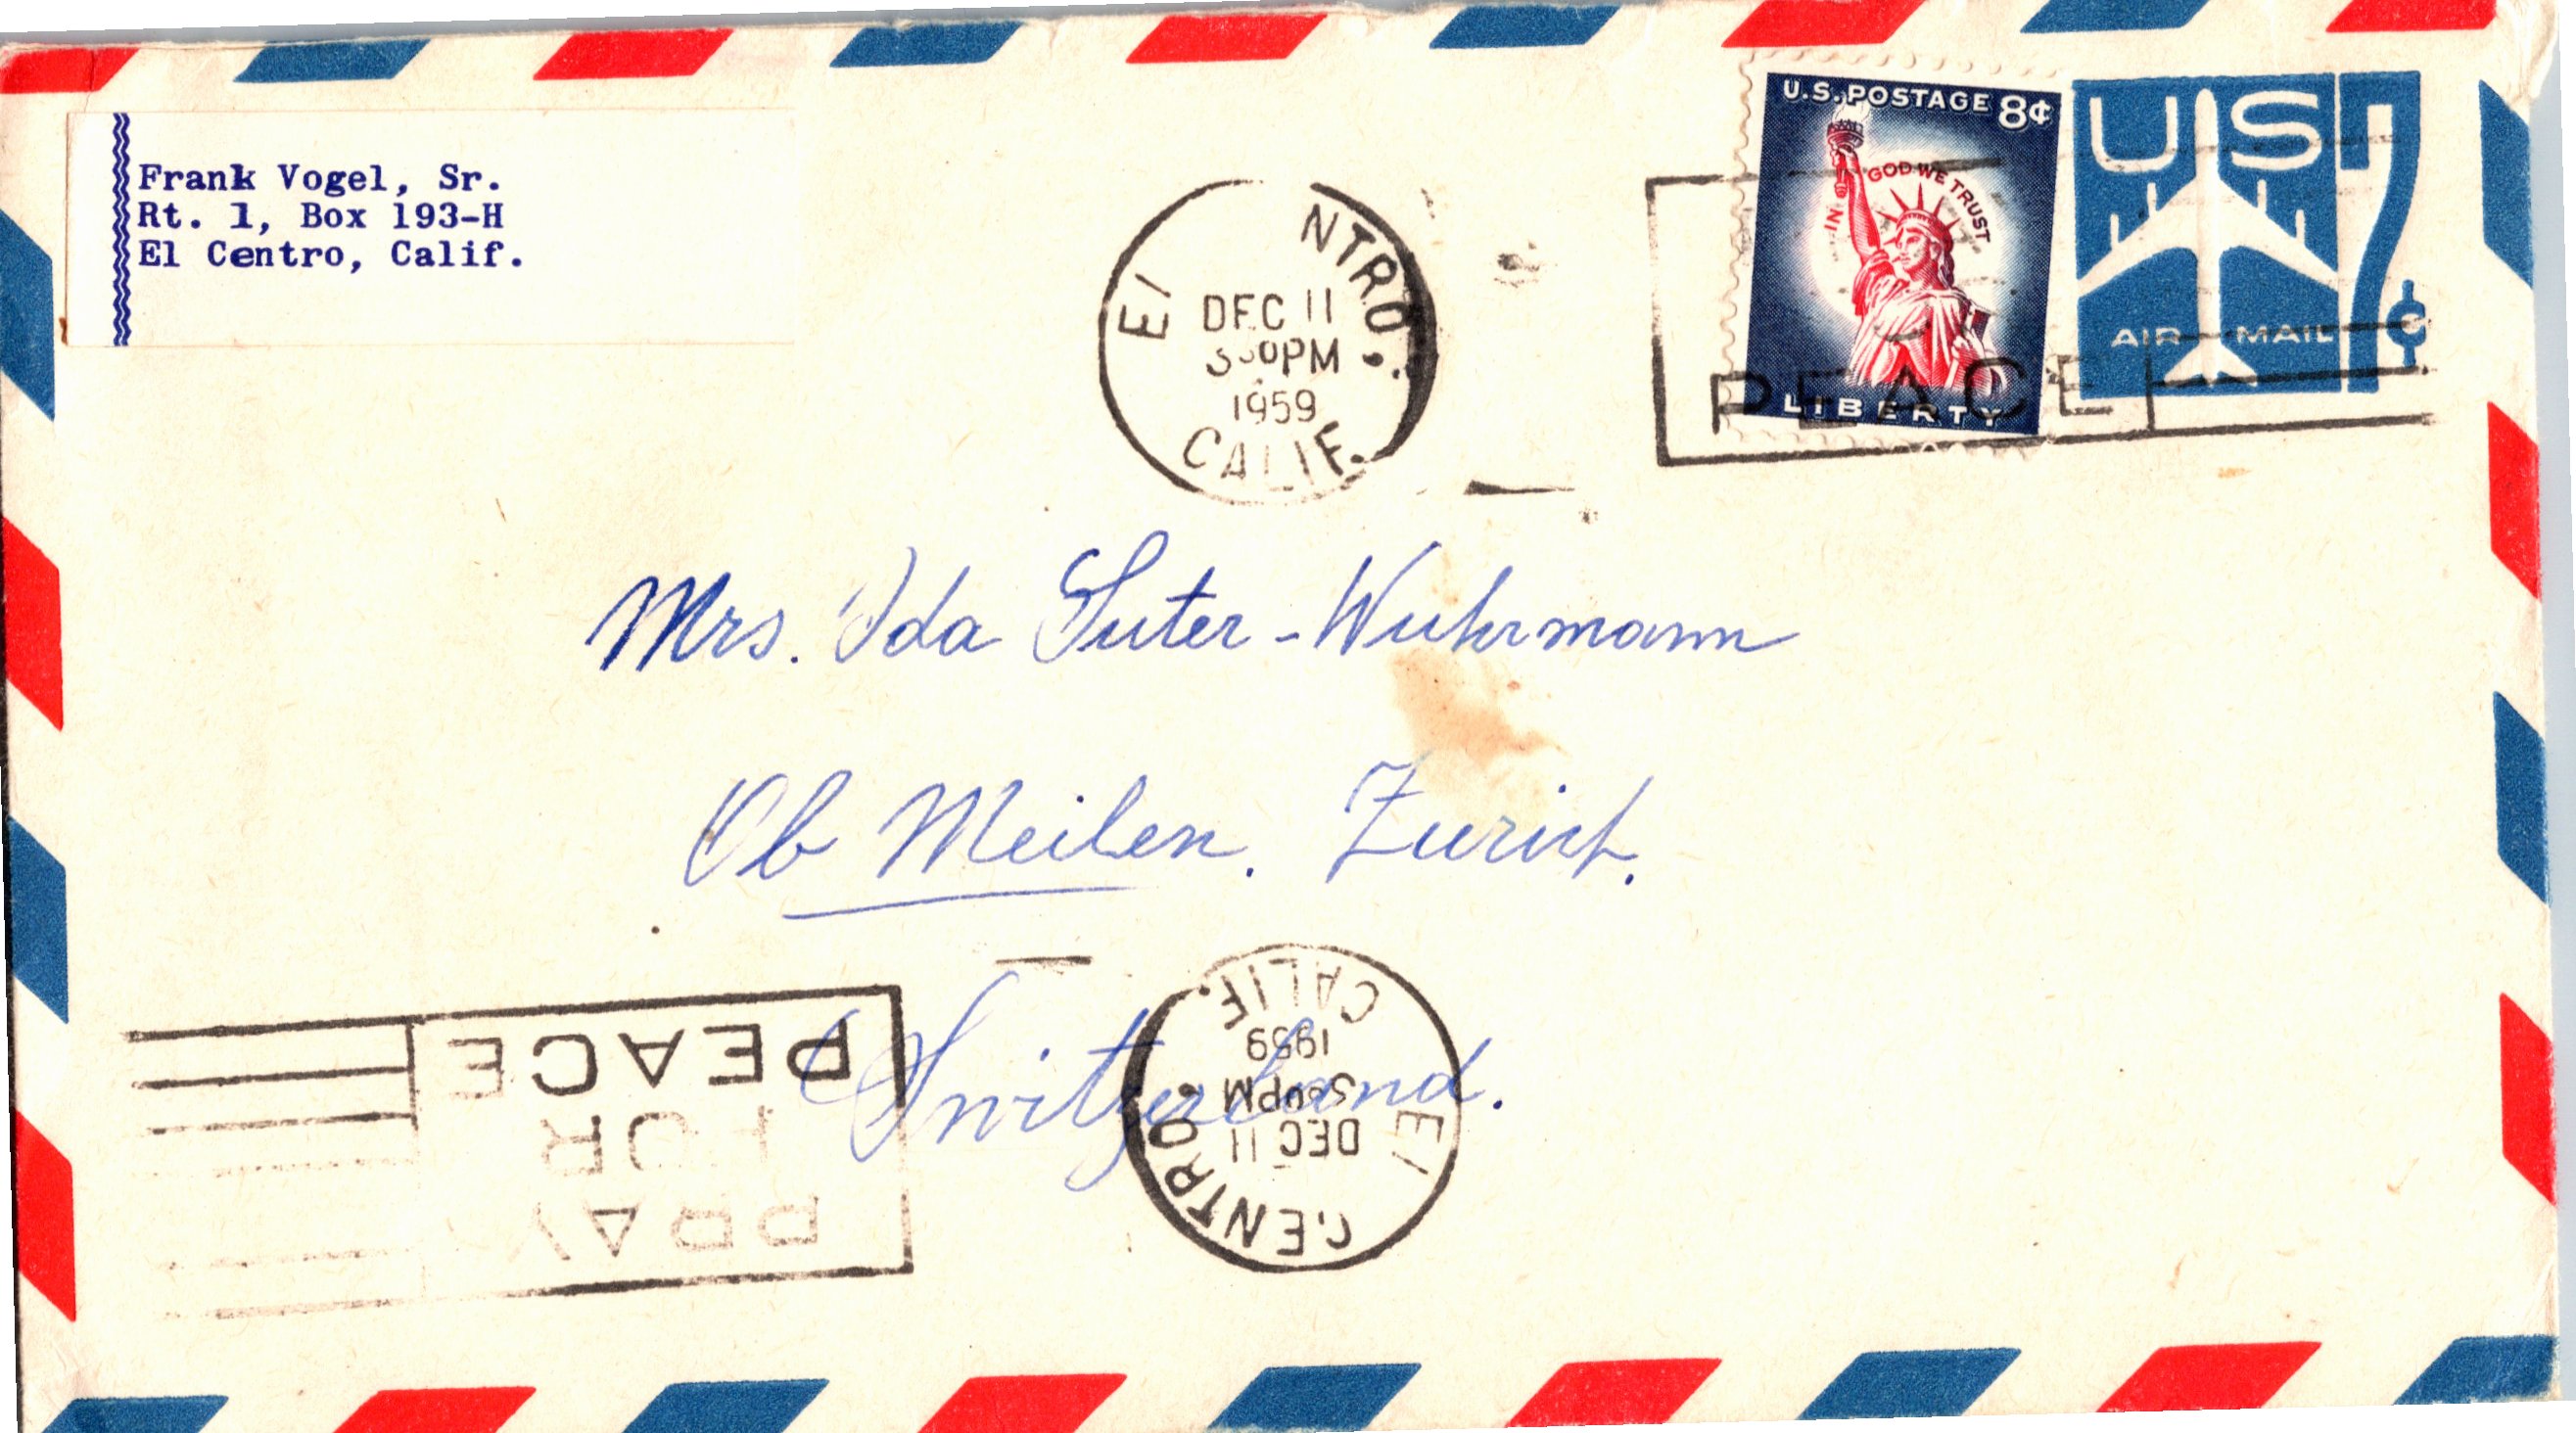 Frank Vogel, Sr.
Rt. 1, Box 193-H
El Centro, Calif.
NTRO,
DEC 11
PM
1959
CALIF.
U.S. POSTAGE 8¢
IN GOD WE TRUST
LIBERTY
US 7¢
AIR MAIL
PEACE
Mrs. Ida Suter-Wuhrmann
Ob Meilen. Zurich.
Switzerland.
PRAY
FOR
PEACE
CENTRO.
DEC 11
PM
1959
CALIF.